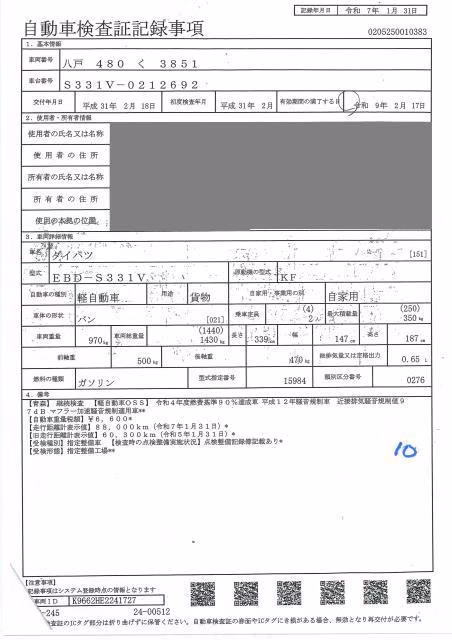 記録年月日 令和 7年 1月 31日
自動車検査証記録事項
0205250010383
1. 基本情報
車両番号 八戸 480 く 3851
車台番号 S331V-0212692
交付年月日 平成 31年 2月 18日 初度検査年月 平成 31年 2月 有効期間の満了する日 令和 9年 2月 17日
2. 使用者・所有者情報
使用者の氏名又は名称
使用者の住所
所有者の氏名又は名称
所有者の住所
使用の本拠の位置
3. 車両詳細情報
車名 ダイハツ [151]
型式 EBD-S331V 原動機の型式 KF
自動車の種別 軽自動車 用途 貨物 自家用・事業用の別 自家用
車体の形状 バン [021] 乗車定員 (4) 2人 最大積載量 (250) 350kg
車両重量 970kg 車両総重量 (1440) 1430kg 長さ 339cm 幅 147cm 高さ 187cm
前軸重 500kg 後軸重 470kg 総排気量又は定格出力 0.65L
燃料の種類 ガソリン 型式指定番号 15984 類別区分番号 0276
4. 備考
【青森】 継続検査 【軽自動車OSS】 令和4年度燃費基準90%達成車 平成12年騒音規制車 近接排気騒音規制値9
7dB マフラー加速騒音規制適用車**
【自動車重量税額】¥6,600*
【走行距離計表示値】88,000km(令和7年1月31日)*
【旧走行距離計表示値】60,300km(令和5年1月31日)*
【受検種別】指定整備車 【検査時の点検整備実施状況】点検整備記録簿記載あり*
【受検形態】指定整備工場**
10
【注意事項】
記録事項はシステム登録時点の情報となります
車両ID K9662HE2241727
-245 24-00512
検査証のICタグ部分は折り曲げずに保管ください。自動車検査証の券面やICタグにき損がある場合、無効となり再交付が必要です。